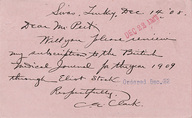 Dec 14 '08.
Dear Mr Peck
Will you please renew
my subscription to the British
Medical Journal for the year 1909
through Clout Stock
Respectfully,
C A Clark.